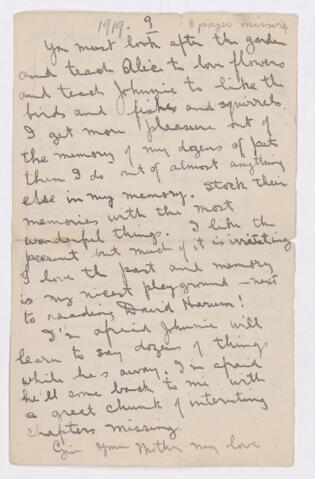 1919. 9 8 pages missing
You must look after the garden
and teach Alice to love flowers
and teach Johnnie to like the
birds and fishes and squirrels.
I get more pleasure out of
the memory of my dozens of pets
than I do out of almost anything
else in my memory. Stock their
memories with the most
wonderful things. I like the
present but much of it is irritating
I love the past and memory
is my nicest playground - next
to David Harum!
I'm afraid Johnnie will
learn to say dozens of things
while he's away. I'm afraid
he'll come back to me with
a great chunk of interesting
chapters missing.
Give your Mother my love